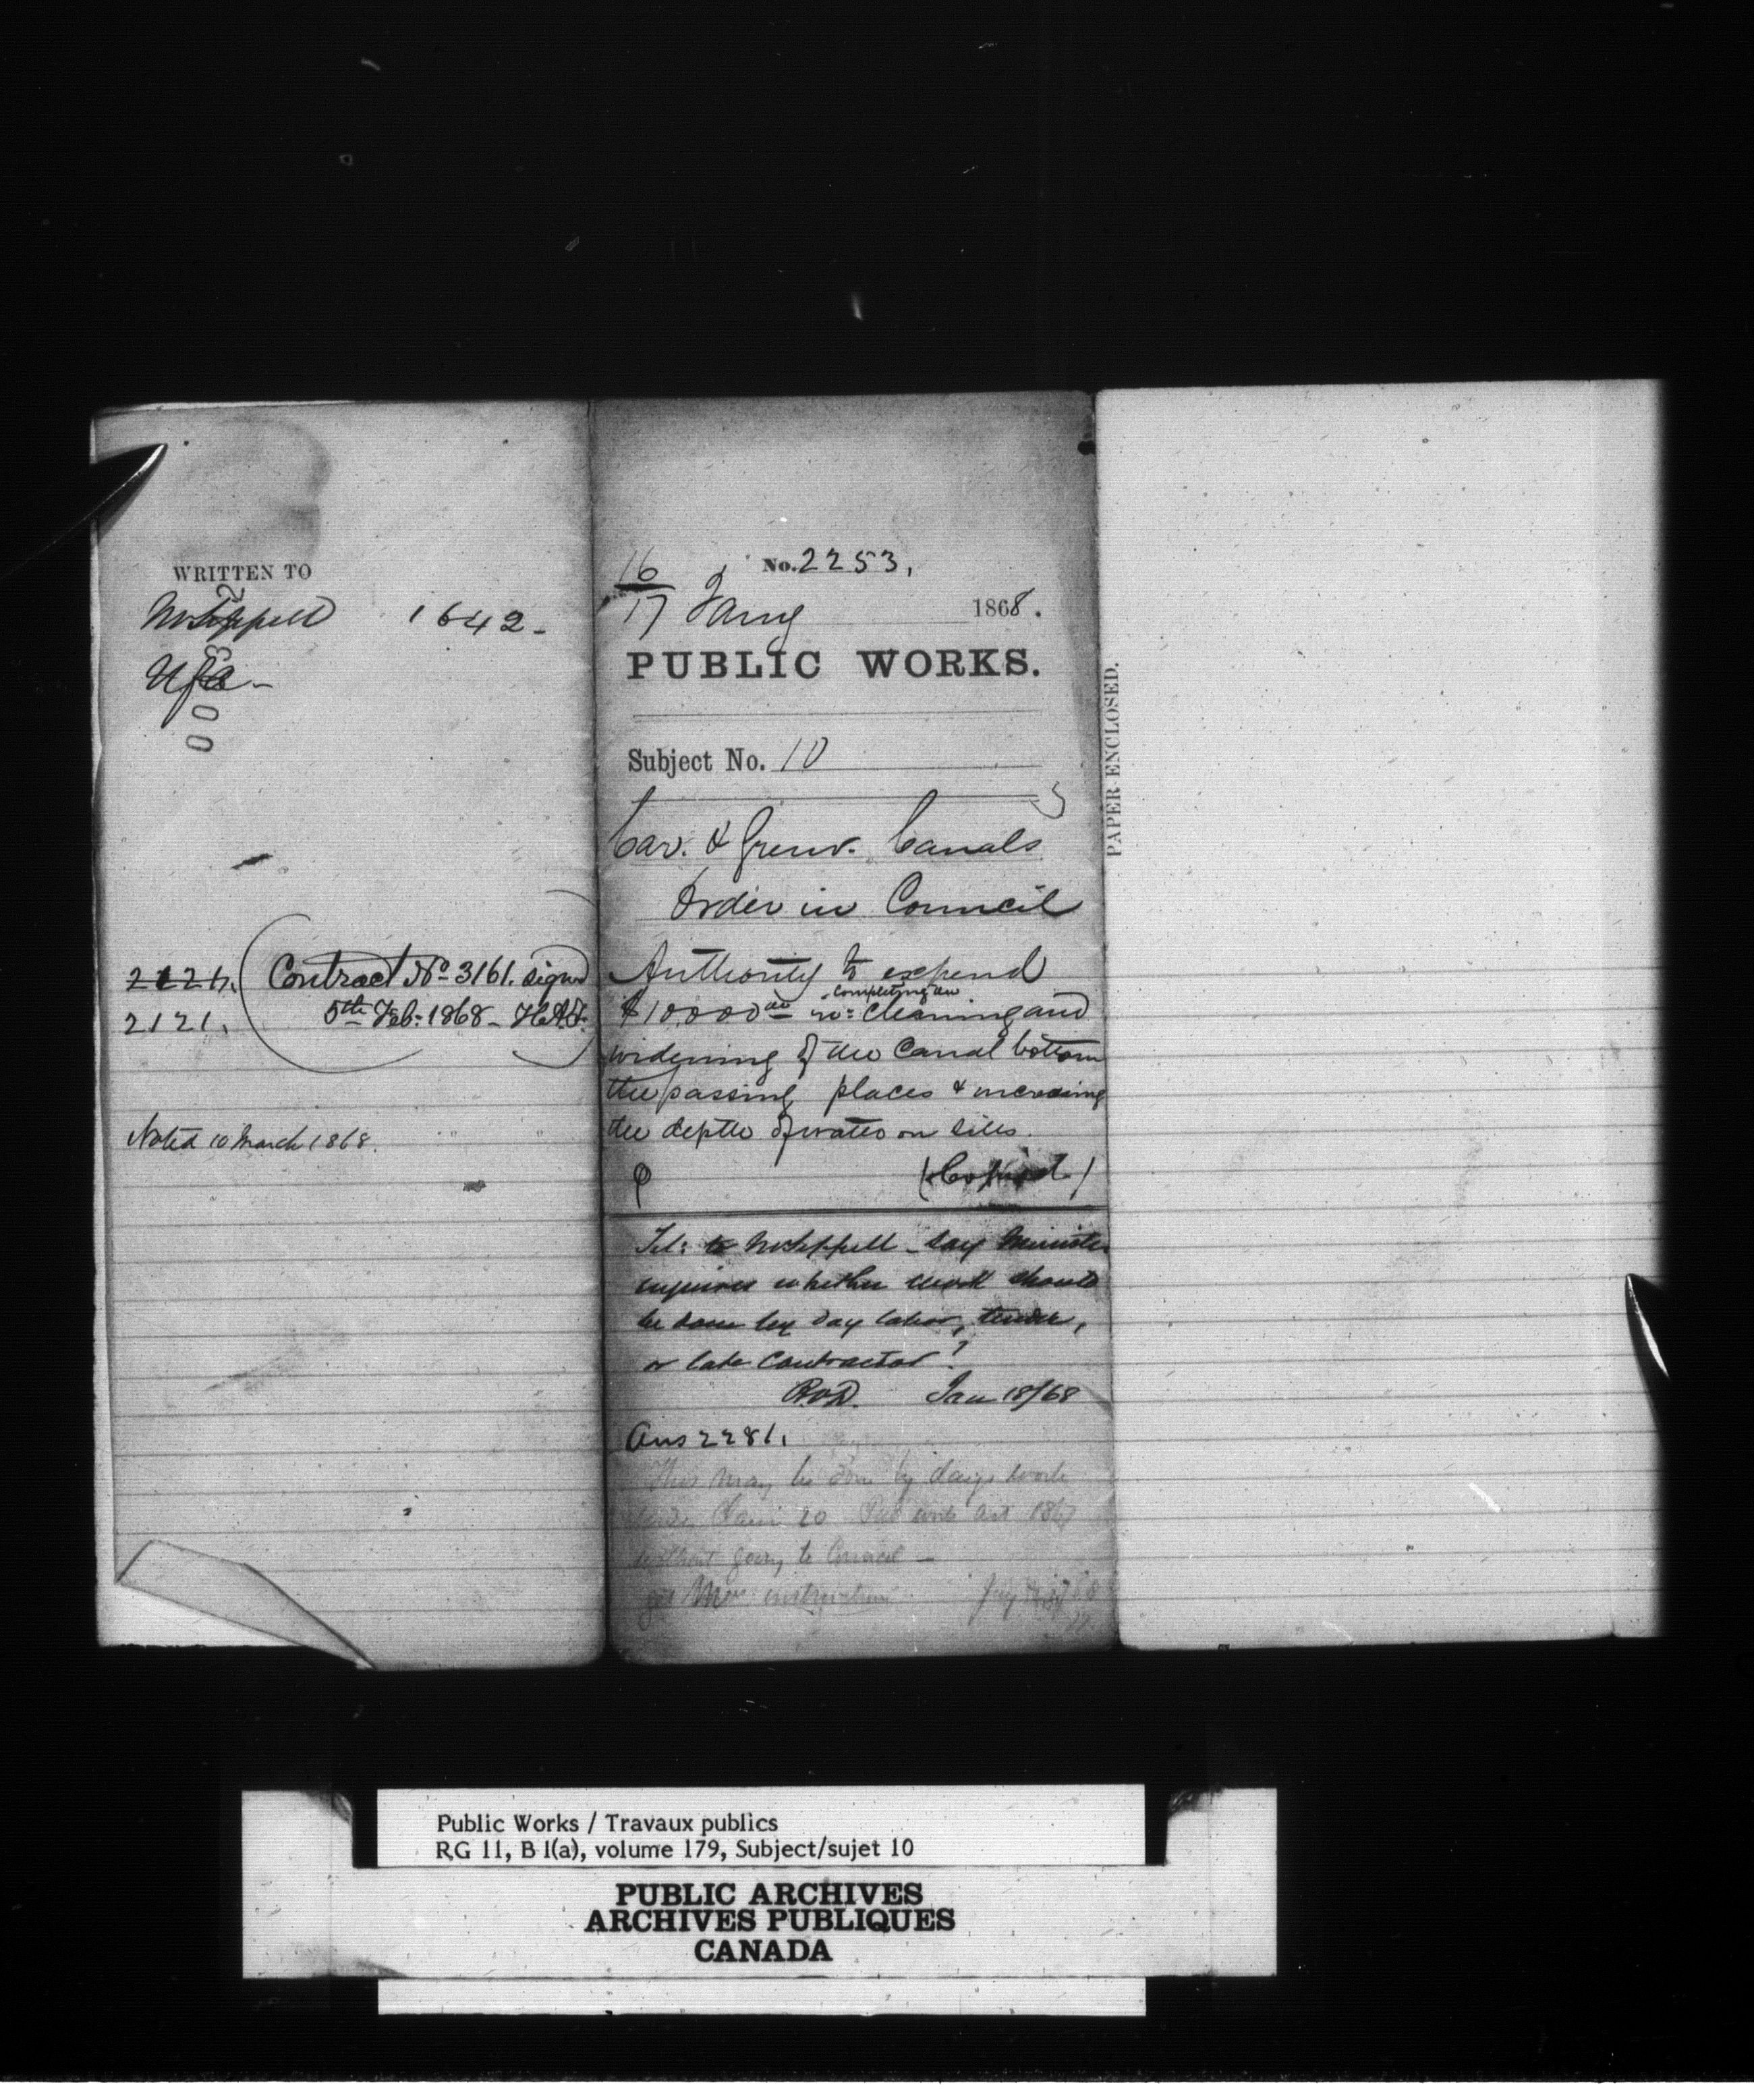 WRITTEN TO
1642-
2124.
2121.
Contract No 3161. signed
5th Feb: 1868 - H.A.F.
Noted 10 March 1868.
No. 2253,
16
17 Jany 1868.
PUBLIC WORKS.
Subject No. 10
Car. & Grenv. Canals
Order in Council
Authority to expend
completing the
$10,000 00 re: cleaning and
widening of the Canal bottom
the passing places & increasing
the depth of water on sills.
(Copied)
Tel: to Mr Sippell - say Minister
inquires whether work should
be done by day labor, tender,
or late contractor?
Jan 18/68
Ans 2281,
This may be done by days work
20 Pub work act 1867
without going to Council -
get instructions
PAPER ENCLOSED.
Public Works / Travaux publics
RG 11, B 1(a), volume 179, Subject/sujet 10
PUBLIC ARCHIVES
ARCHIVES PUBLIQUES
CANADA